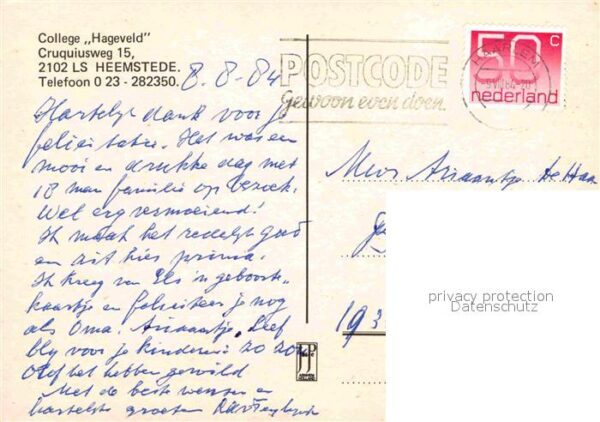 College „Hageveld”
Cruquiusweg 15,
2102 LS HEEMSTEDE.
Telefoon 0 23 - 282350.
8-8-84
POSTCODE
Gewoon even doen.
HAARLEM
50 c
nederland
Hartelijk dank voor je
felicitatie. Het was een
mooi en drukke dag met
18 man familie op bezoek.
Wel erg vermoeiend!
Ik maak het redelijk goed
en zit hier prima.
Ik kreeg van Els 'n geboorte-
kaartje en feliciteer je nog
als Oma. Ariaantje. Leef
blij voor je kinderen! Zo zou
Olof het hebben gewild
Met de beste wensen en
hartelijke groeten
Mevr Ariaantje de Haan
193
privacy protection
Datenschutz